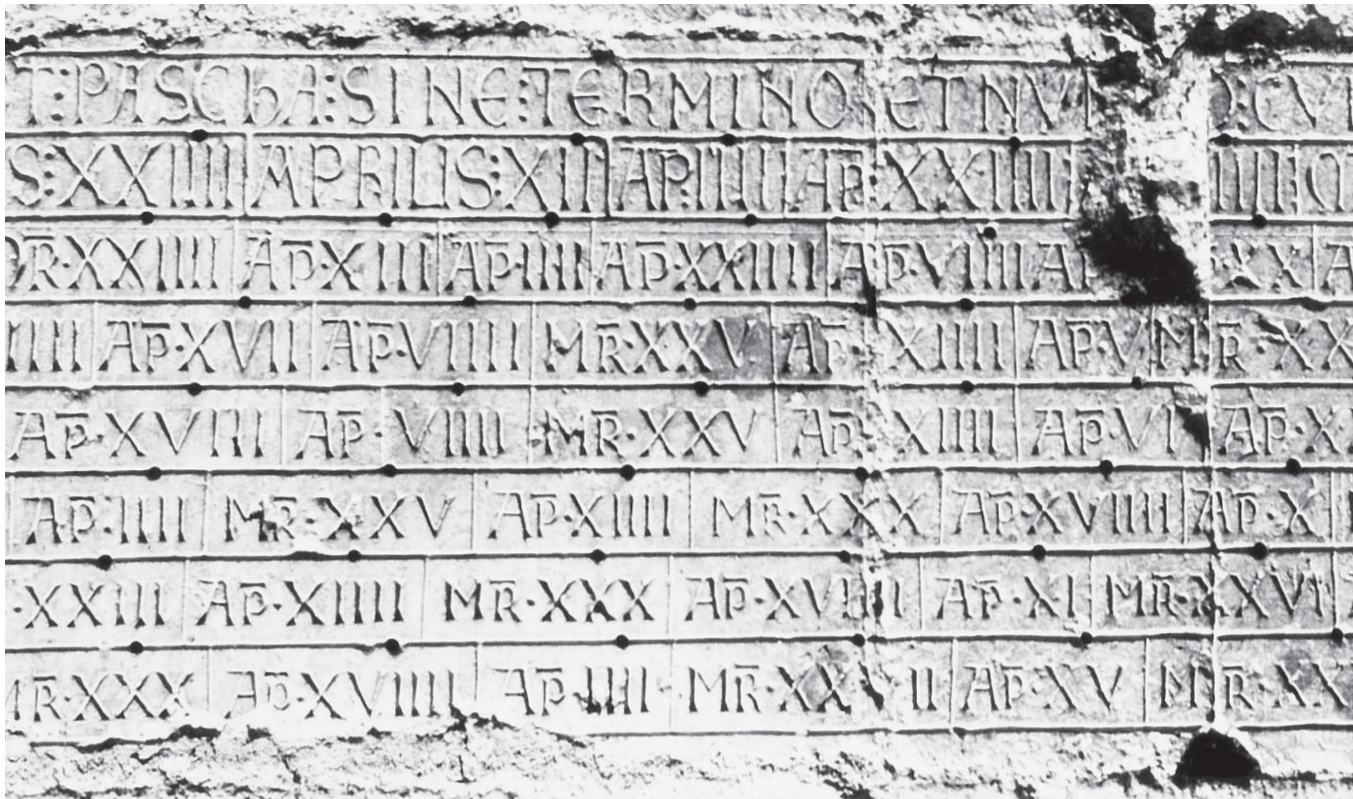 T:PASCHA:SINE:TERMINO:ET NV
S:XXIIII APRILIS:XII AP:IIII AP:XXIIII
R·XXIIII AP·XIII AP·IIII AP·XXIIII AP·VIIII AP XX
IIII AP·XVII AP·VIIII MR·XXV AP XIIII AP·V MR·XX
AP·XVIIII AP·VIIII MR·XXV AP·XIIII AP·VI AP·X
AP·IIII MR·XXV AP·XIIII MR·XXX AP·XVIIII AP·X
·XXIII AP·XIIII MR·XXX AP·XVIIII AP·XI MR·XXVI
MR·XXX AP·XVIIII AP·IIII MR·XXVII AP·XV MR·XX